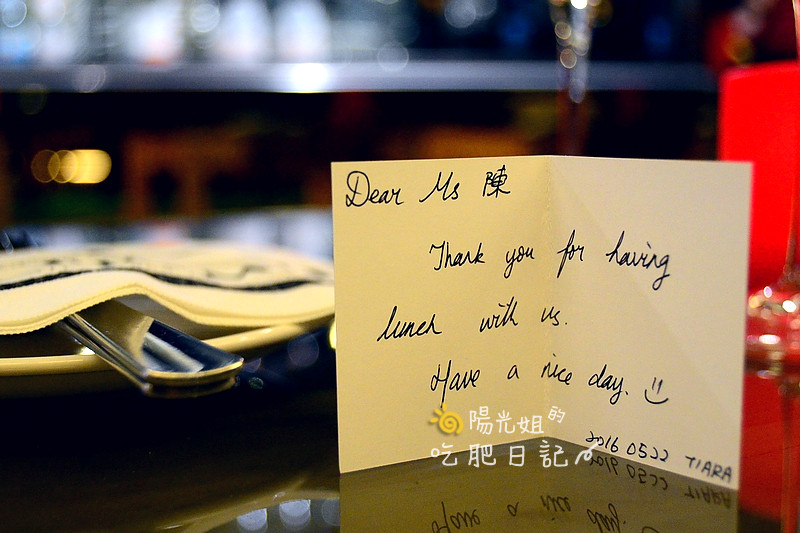 Dear Ms 陳
Thank you for having
lunch with us.
Have a nice day.
陽光姐的
吃肥日記
2016 0522 TIARA